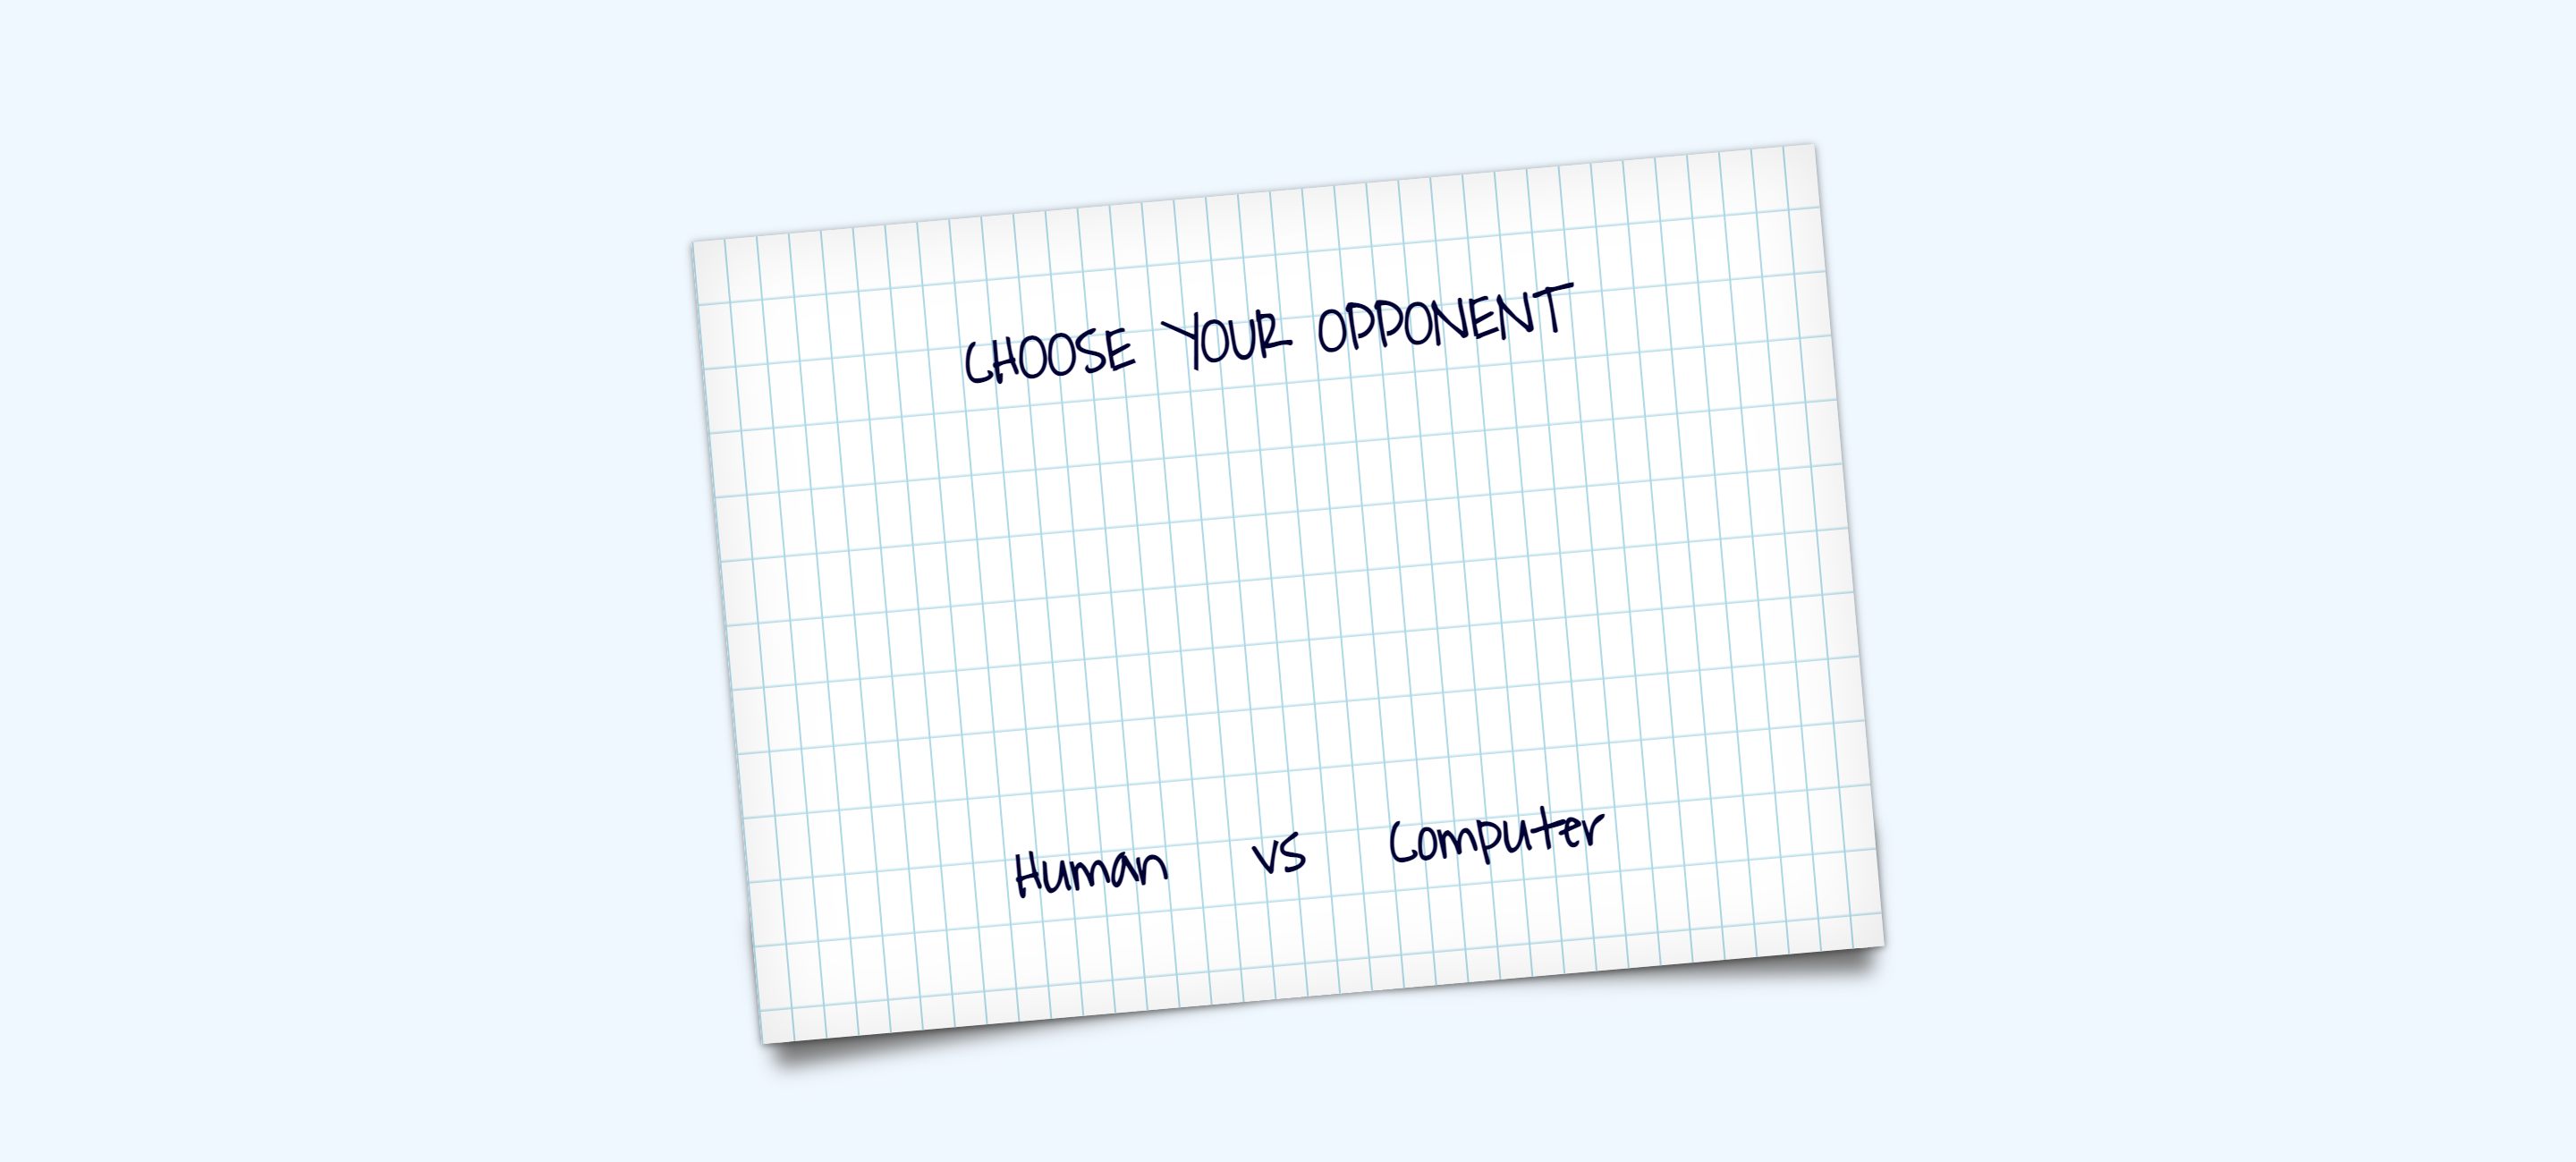 CHOOSE YOUR OPPONENT
Human vs Computer